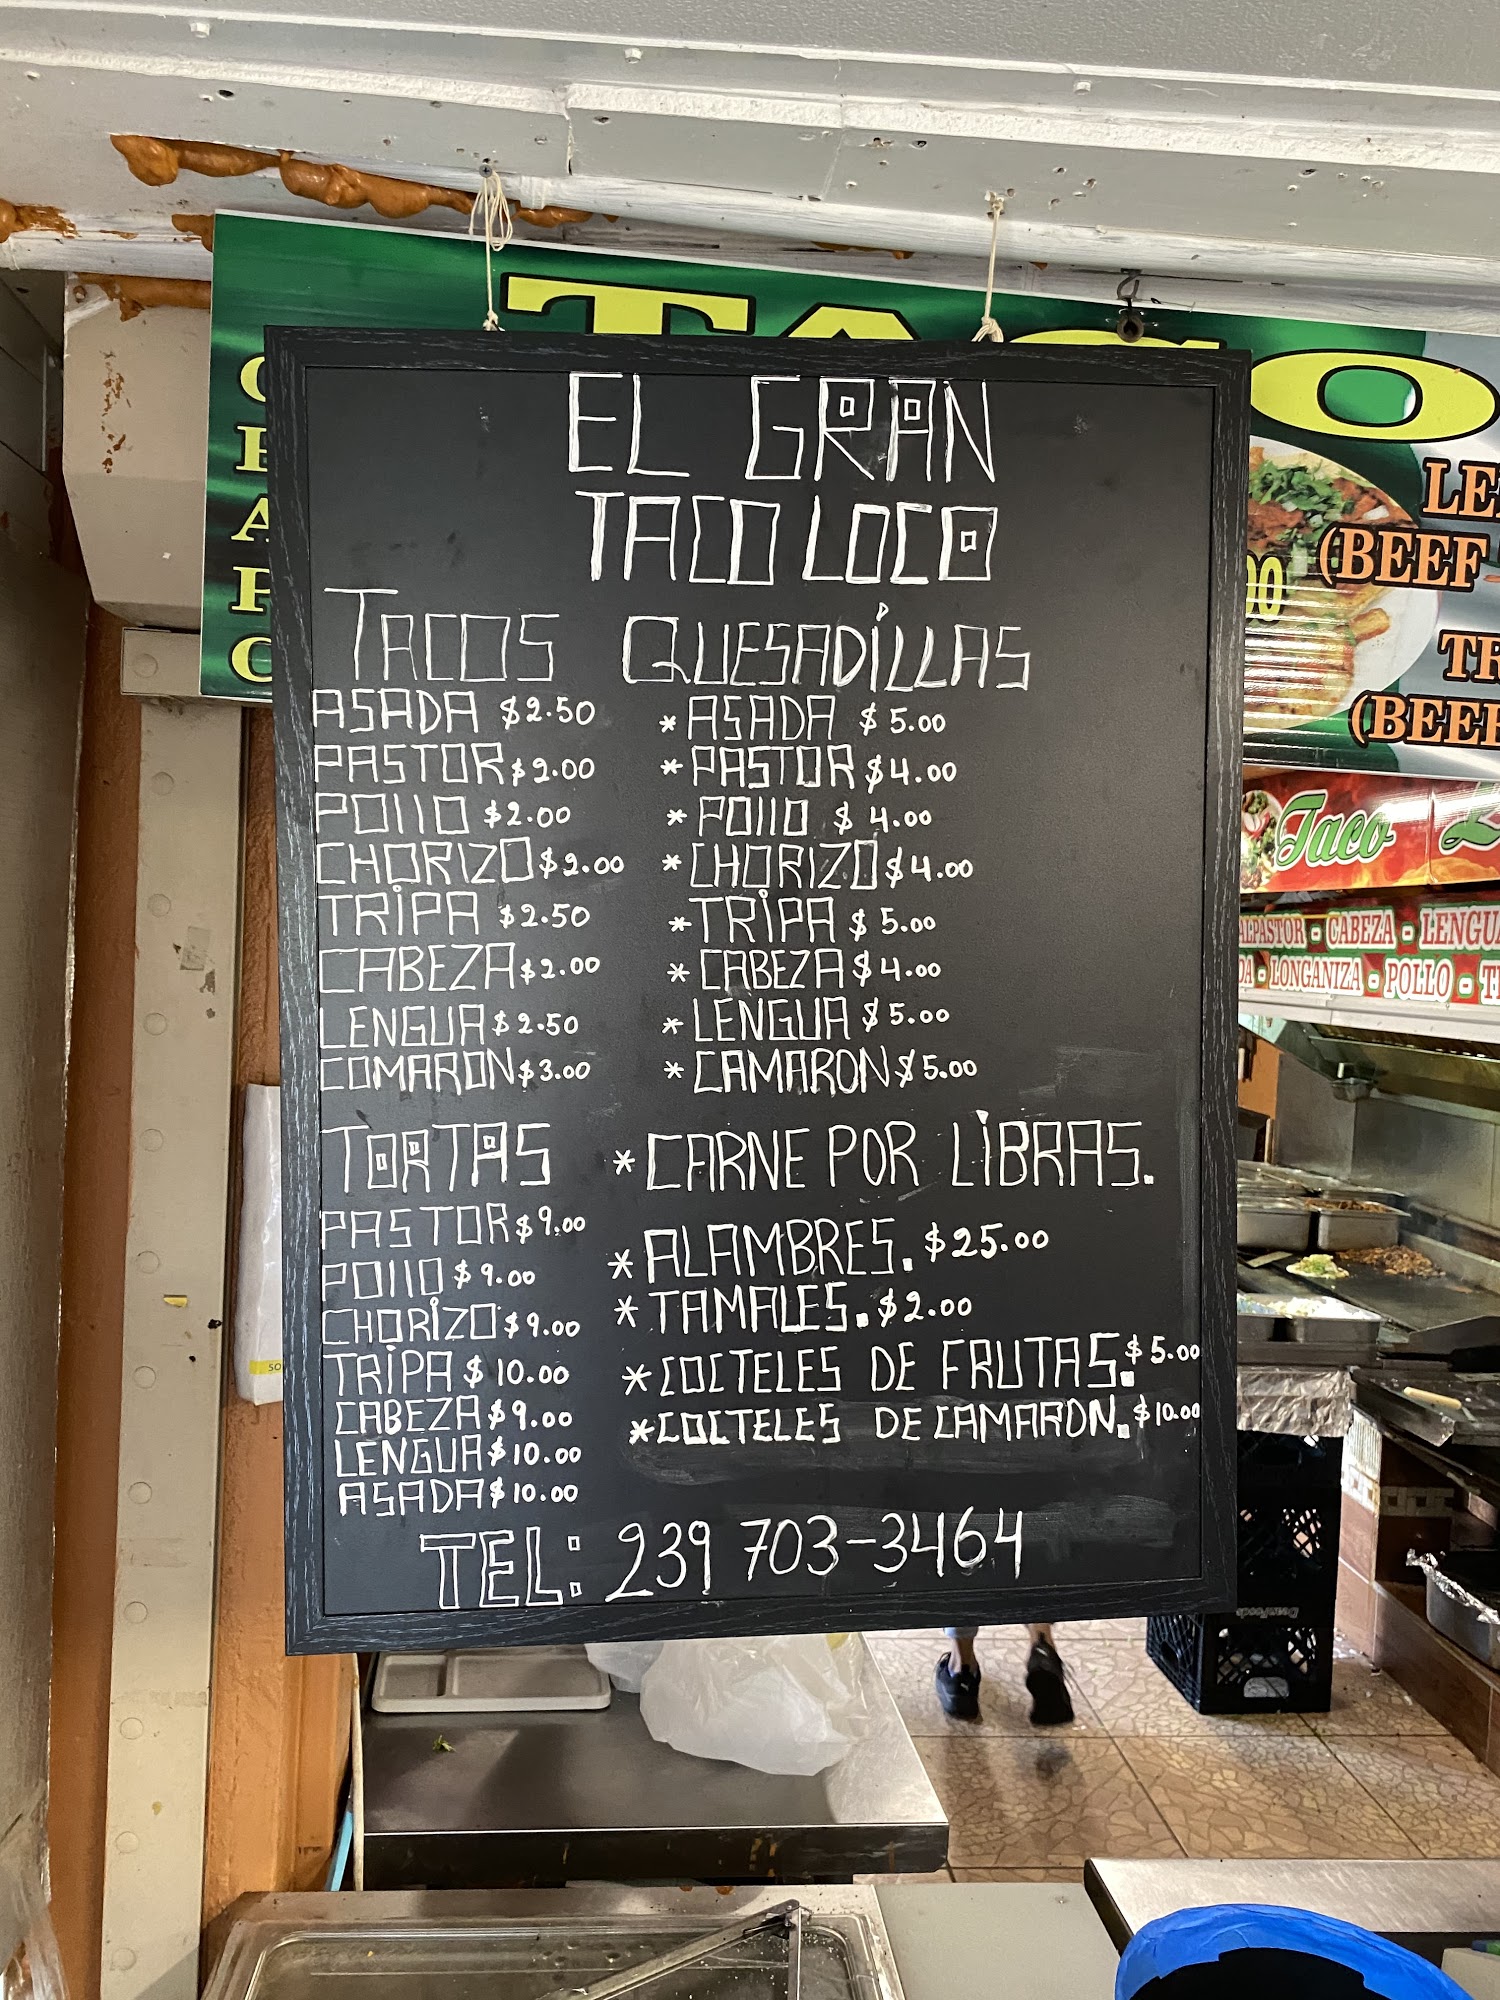 EL GRAN
TACO LOCO
TACOS
ASADA $2.50
PASTOR $2.00
POLLO $2.00
CHORIZO $2.00
TRIPA $2.50
CABEZA $2.00
LENGUA $2.50
COMARON $3.00
QUESADILLAS
* ASADA $5.00
* PASTOR $4.00
* POLLO $4.00
* CHORIZO $4.00
* TRIPA $5.00
* CABEZA $4.00
* LENGUA $5.00
* CAMARON $5.00
TORTAS
PASTOR $9.00
POLLO $9.00
CHORIZO $9.00
TRIPA $10.00
CABEZA $9.00
LENGUA $10.00
ASADA $10.00
* CARNE POR LIBRAS.
* ALAMBRES. $25.00
* TAMALES. $2.00
* COCTELES DE FRUTAS. $5.00
* COCTELES DE CAMARON. $10.00
TEL: 239 703-3464
TACO
(BEEF
Taco
ALPASTOR - CABEZA - LENGUA
DA - LONGANIZA - POLLO - T
DeanFoods